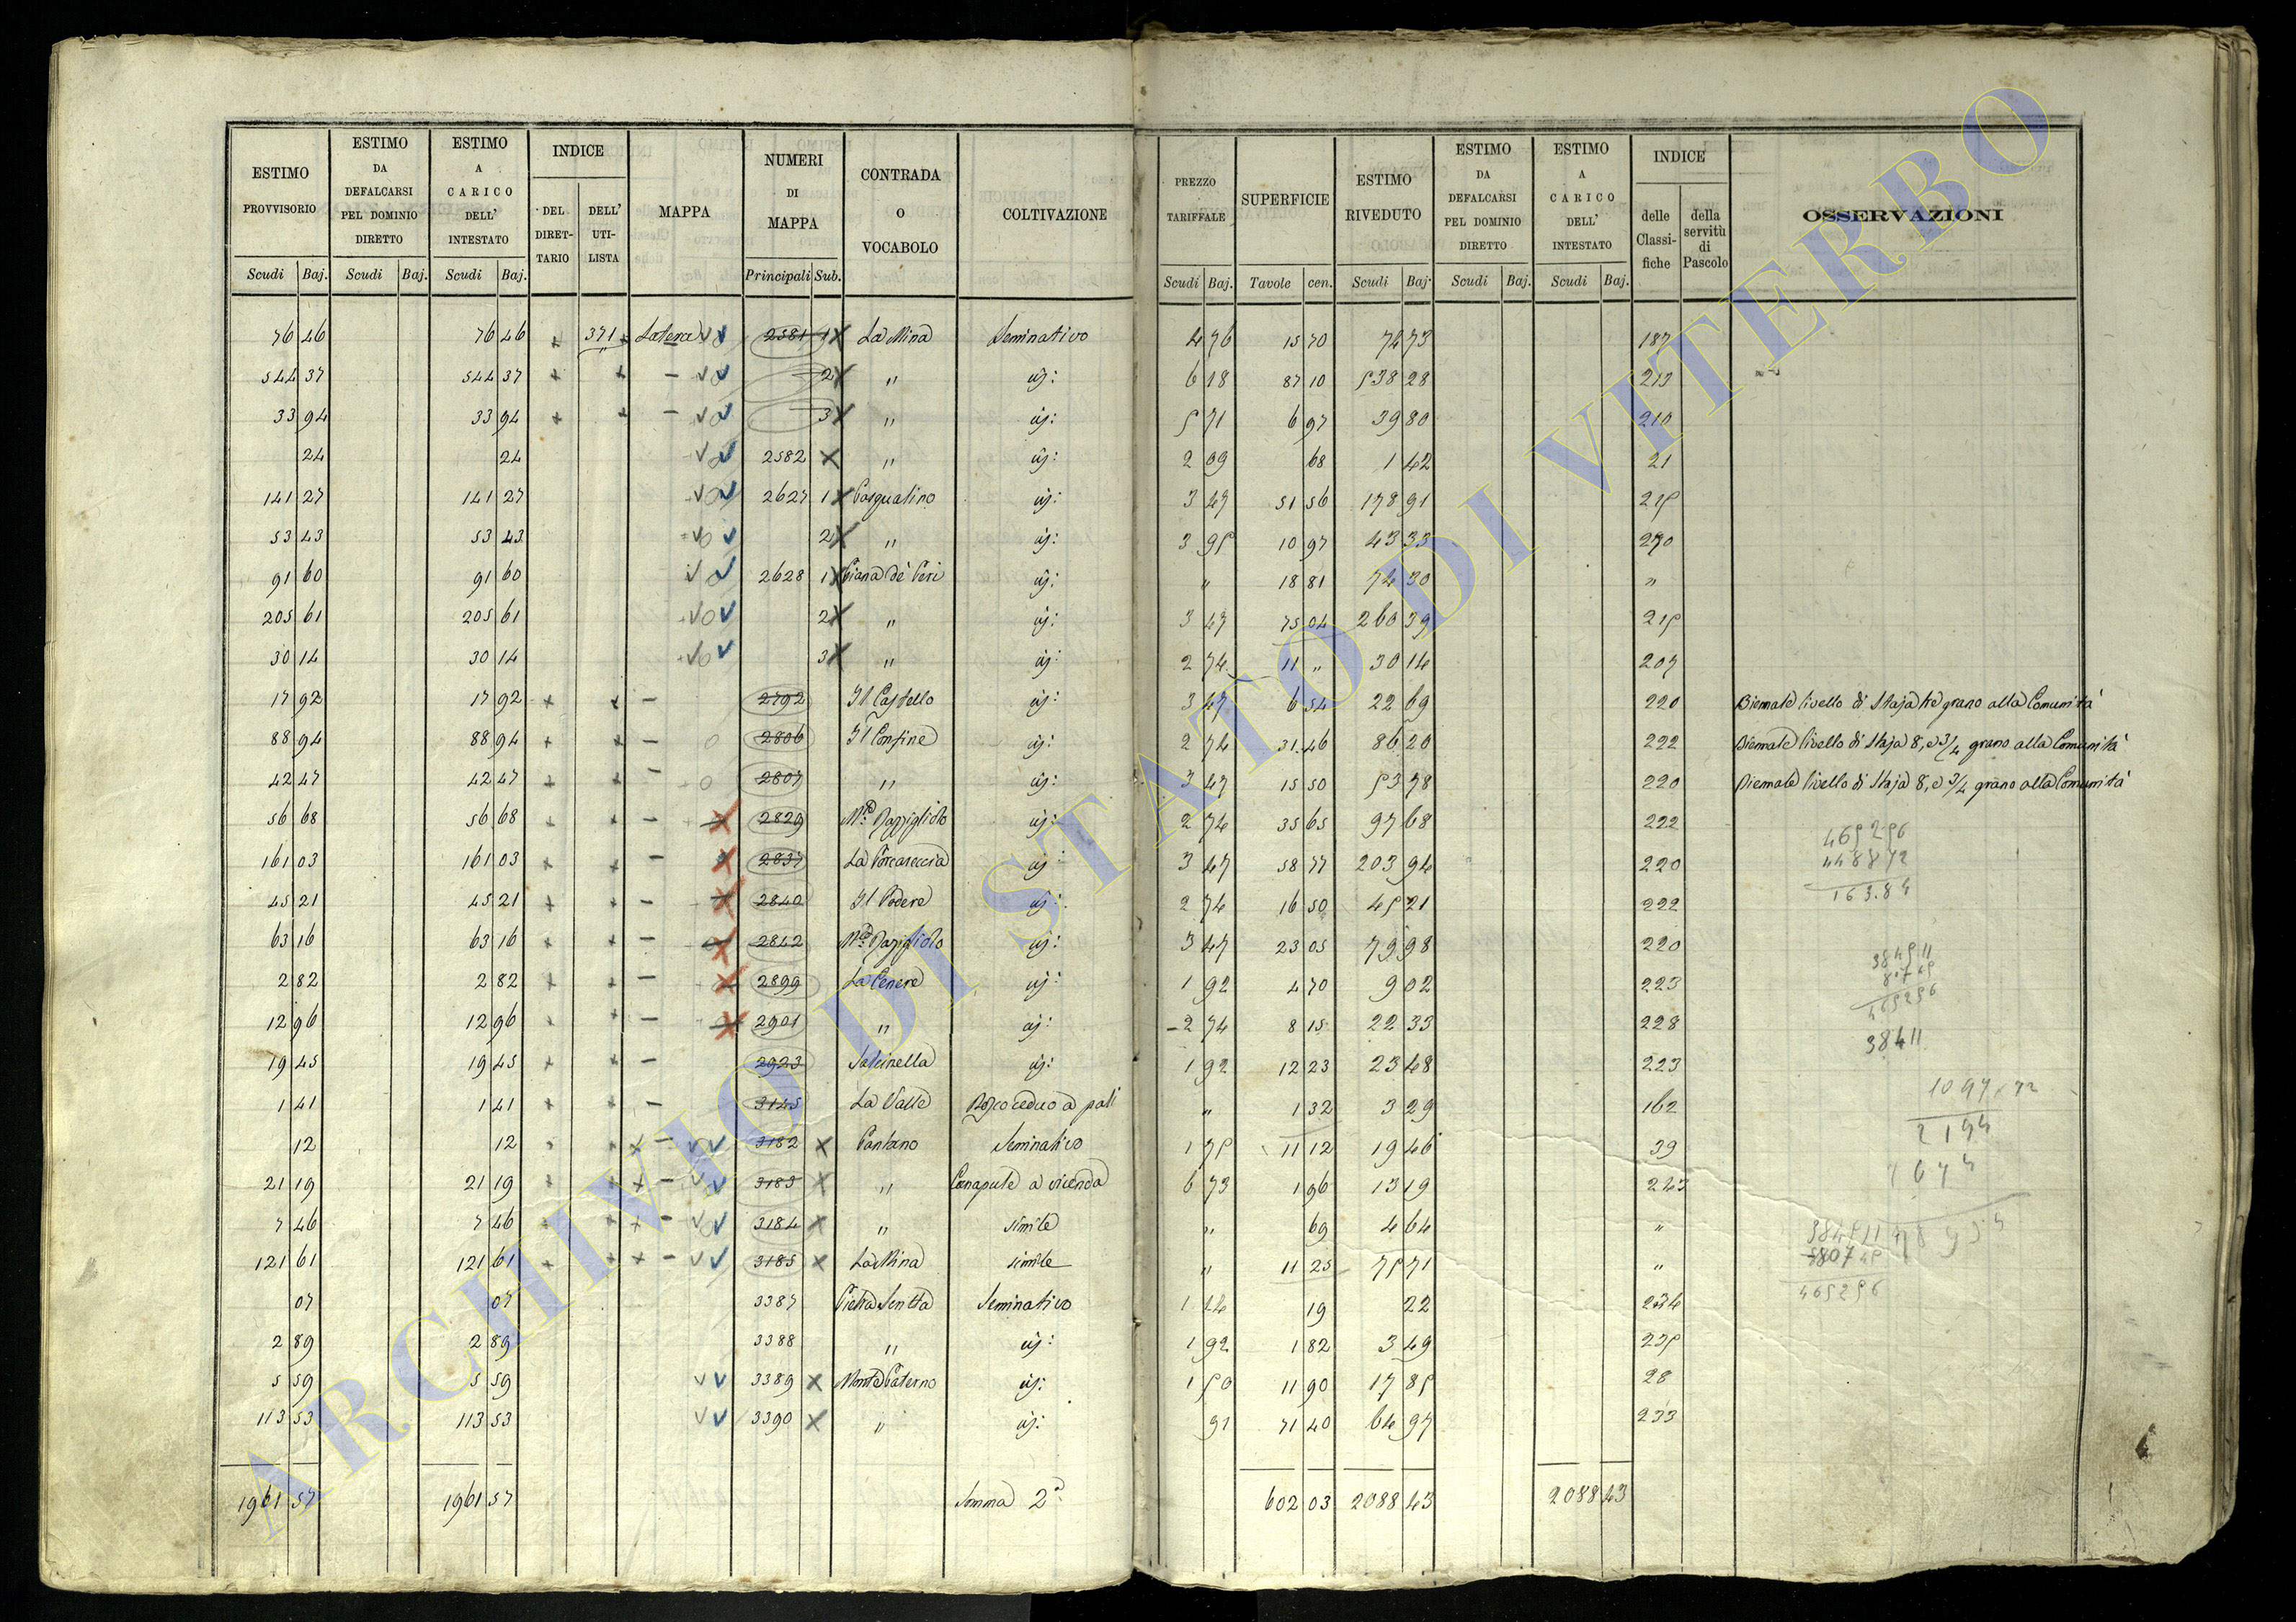 ESTIMO PROVVISORIO | ESTIMO DA DEFALCARSI PEL DOMINIO DIRETTO | ESTIMO A CARICO DELL' INTESTATO | INDICE DEL DIRETTARIO | DELL' UTILISTA | MAPPA | NUMERI DI MAPPA | CONTRADA O VOCABOLO | COLTIVAZIONE | PREZZO TARIFFALE | SUPERFICIE | ESTIMO RIVEDUTO | ESTIMO DA DEFALCARSI PEL DOMINIO DIRETTO | ESTIMO A CARICO DELL' INTESTATO | INDICE delle Classifiche | della servitù di Pascolo | OSSERVAZIONI
Scudi Baj. | Scudi Baj. | Scudi Baj. | Principali Sub. | Scudi Baj. | Tavole cen. | Scudi Baj. | Scudi Baj. | Scudi Baj.
76 46 | 76 46 | + | 371 + | Latera | 2581 1 | La Mina | Seminativo | 4 76 | 15 70 | 74 73 | 187
544 37 | 544 37 | + | + | – | 2 | " | iij: | 6 18 | 87 10 | 538 28 | 213
33 94 | 33 94 | + | + | – | 3 | " | iij: | 5 71 | 6 97 | 39 80 | 210
24 | 24 | 2582 | " | iij: | 2 09 | 68 | 1 42 | 21
141 27 | 141 27 | 2627 1 | Pasqualino | iij: | 3 47 | 51 56 | 178 91 | 215
53 43 | 53 43 | 2 | " | iij: | 3 95 | 10 97 | 43 33
91 60 | 91 60 | 2628 1 | Piana de' Peri | iij: | " | 18 81 | 74 30 | "
205 61 | 205 61 | 2 | " | iij: | 3 47 | 75 04 | 260 39 | 215
30 14 | 30 14 | 3 | " | iij: | 2 74 | 11 " | 30 14 | 207
17 92 | 17 92 | + | + | – | 2792 | Il Castello | iij: | 3 47 | 6 54 | 22 69 | 220 | Biennale livello di Staja tre grano alla Comunità
88 94 | 88 94 | + | + | – | 2806 | Il Confine | iij: | 2 74 | 31 46 | 86 20 | 222 | Biennale livello di Staja 8, e 3/4 grano alla Comunità
42 47 | 42 47 | + | + | – | 2807 | " | iij: | 3 47 | 15 50 | 53 78 | 220 | Biennale livello di Staja 8, e 3/4 grano alla Comunità
56 68 | 56 68 | + | + | – | 2829 | iij: | 2 74 | 35 65 | 97 68 | 222
161 03 | 161 03 | + | + | – | 2837 | La Porcareccia | iij: | 3 47 | 58 77 | 203 94 | 220
45 21 | 45 21 | + | + | – | 2840 | Il Podere | iij: | 2 74 | 16 50 | 45 21 | 222
63 16 | 63 16 | + | + | – | 2842 | iij: | 3 47 | 23 05 | 79 98 | 220
2 82 | 2 82 | + | + | – | 2899 | La Cenere | iij: | 1 92 | 4 70 | 9 02 | 223
12 96 | 12 96 | + | + | – | 2901 | " | iij: | 2 74 | 8 15 | 22 33 | 228
19 45 | 19 45 | + | + | – | 2923 | Salcinella | iij: | 1 92 | 12 23 | 23 48 | 223
1 41 | 1 41 | + | + | – | 3145 | La Valle | Bosco ceduo a pali | " | 1 32 | 3 29 | 162
12 | 12 | + | + | – | 3182 | Pantano | Seminativo | 1 75 | 11 12 | 19 46 | 39
21 19 | 21 19 | + | + | – | 3183 | " | Canapule a vicenda | 6 73 | 1 96 | 13 19 | 243
7 46 | 7 46 | + | + | – | 3184 | " | simile | " | 69 | 4 64 | "
121 61 | 121 61 | + | + | – | 3185 | La Mina | simile | " | 11 25 | 75 71 | "
07 | 07 | 3387 | Pietra Scritta | Seminativo | 1 14 | 19 | 22 | 234
2 89 | 2 89 | 3388 | " | iij: | 1 92 | 1 82 | 3 49 | 235
5 59 | 5 59 | 3389 | Monte Paterno | iij: | 1 50 | 11 90 | 17 85 | 28
113 53 | 113 53 | 3390 | " | iij: | 91 | 71 40 | 64 97 | 233
1961 57 | 1961 57 | Somma 2ª | 602 03 | 2088 43 | 2088 43
465296
448872
163.84
465296
38411
1097.72
2194
465296
ARCHIVIO DI STATO DI VITERBO